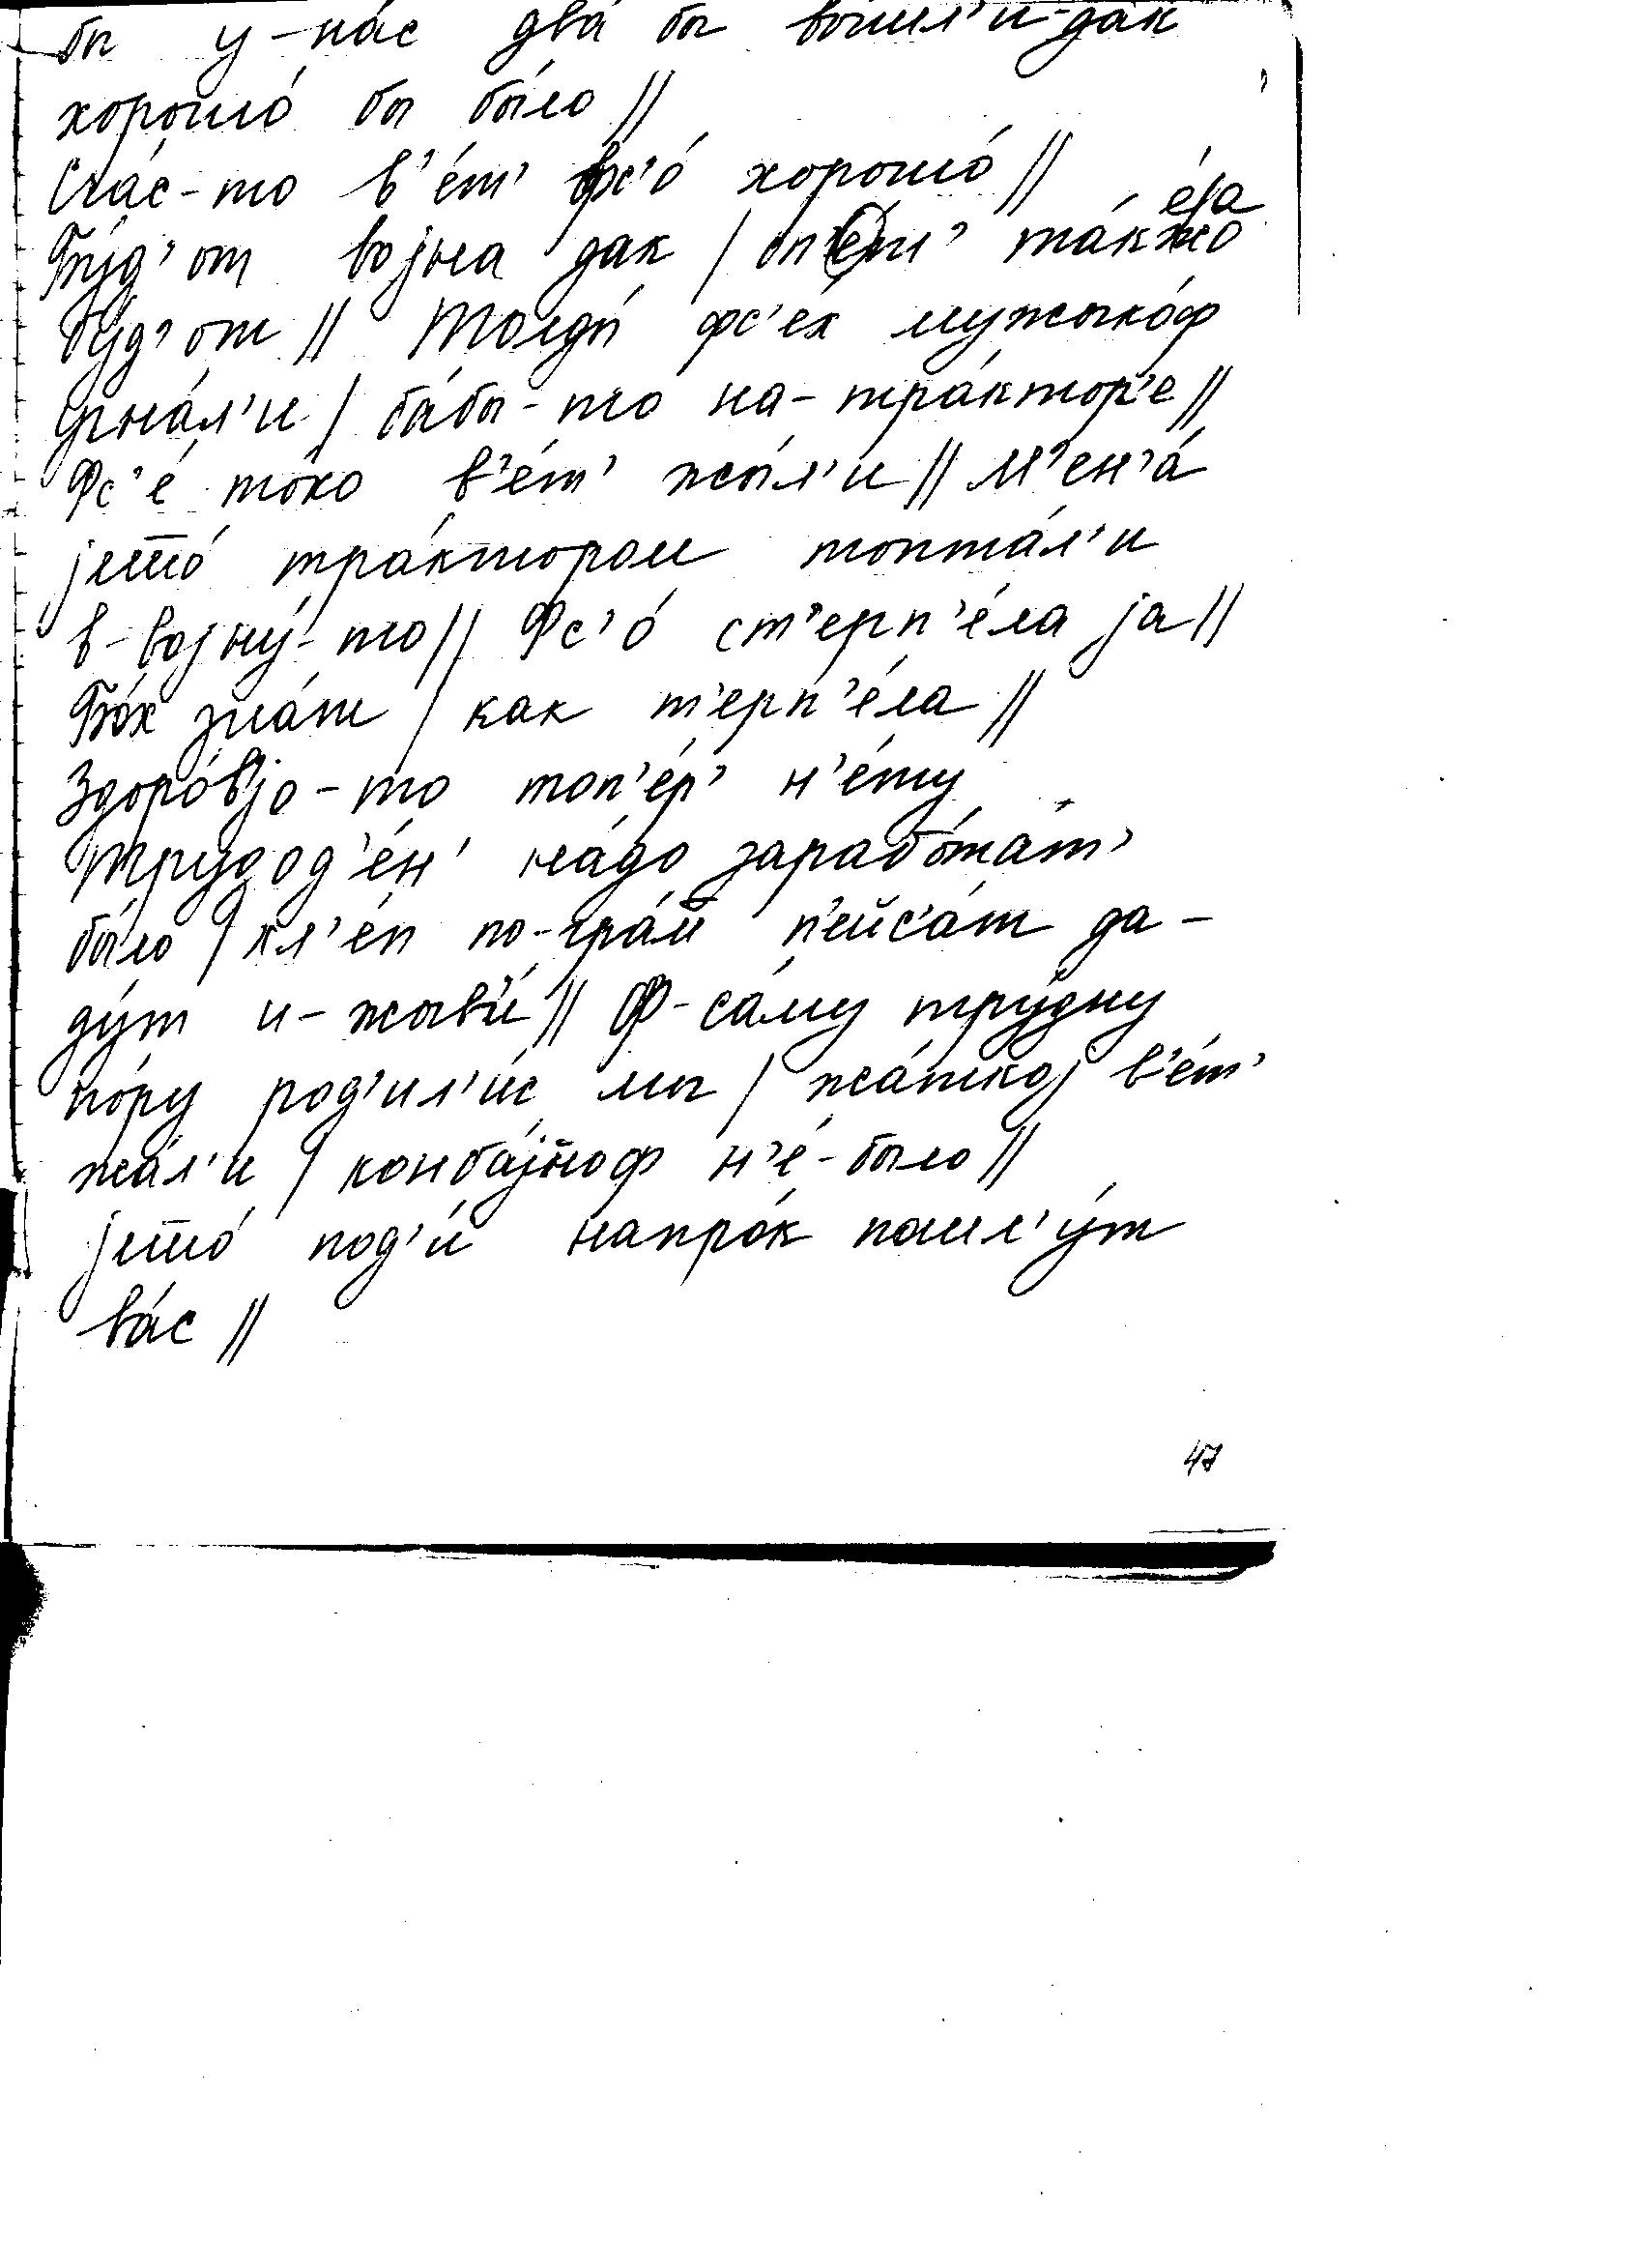 бы у-на́с два́ бы вы́шл'и-дак
хорошо́ бы бы́ло //
Счас-то в'е́т' фс'о́ хорошо́ //
е́ја
Бу́д'от војна дак / оп'е́т' та́кжо
бу́д'от // Толды́ фс'ех мужыко́ф
угна́л'и / ба́бы-то на-тра́ктор'е //
Фс'е́ то́ко в'е́т' жы́л'и // М'ен'а́
јешшо́ тра́ктором топта́л'и
в-војну́-то // Фс'о́ ст'ерп'е́ла ја //
Бо́х зна́т / как т'ерп'е́ла //
Здоро́в'јо-то топ'е́р' н'е́ту
Трудод'е́н' на́до зарабо́та́т'
бы́ло / хл'е́п по-гра́м п'ейс'а́т да-
ду́т и-жыв'и́ // Ф-са́му тру́дну
по́ру род'ил'и́с мы / жа́ткој в'е́т'
жа́л'и / конба́јноф н'е́-было //
јешшо́ под'и́ напро́к пошл'у́т
ва́с //
47